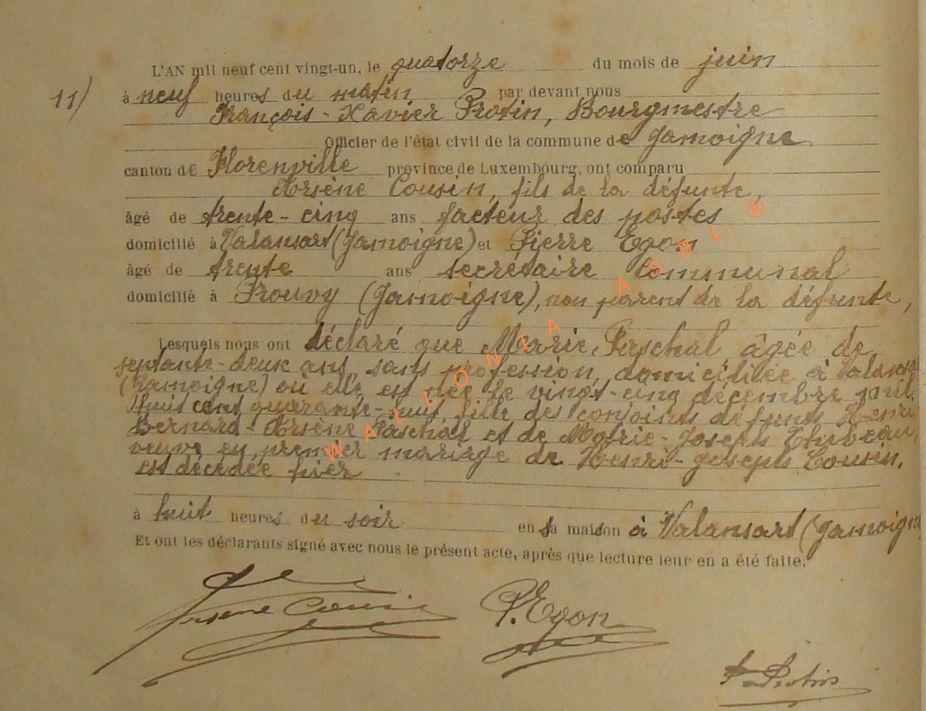 L'AN mil neuf cent vingt-un, le quatorze du mois de juin
11) à neuf heures du matin par devant nous
François-Xavier Protin, Bourgmestre
Officier de l'état civil de la commune de Jamoigne
canton de Florenville province de Luxembourg, ont comparu
Arsène Cousin, fils de la défunte,
âgé de trente-cinq ans facteur des postes
domicilié à Valansart (Jamoigne) et Pierre Egon
âgé de trente ans secrétaire communal
domicilié à Prouvy (Jamoigne), non parent de la défunte,
Lesquels nous ont déclaré que Marie Paschal âgée de
septante-deux ans, sans profession, domiciliée à Valansart
(Jamoigne) où elle est née le vingt-cinq décembre mil
huit cent quarante-huit fille des conjoints défunts Henri
Bernard-Arsène Paschal et de Marie-Joseph
veuve en premier mariage de Henri-Joseph Cousin,
est décédée hier
à huit heures du soir en sa maison à Valansart (Jamoigne
Et ont les déclarants signé avec nous le présent acte, après que lecture leur en a été faite.
Arsène Cousin P. Egon
Protin
WALLONIA ASBL ©